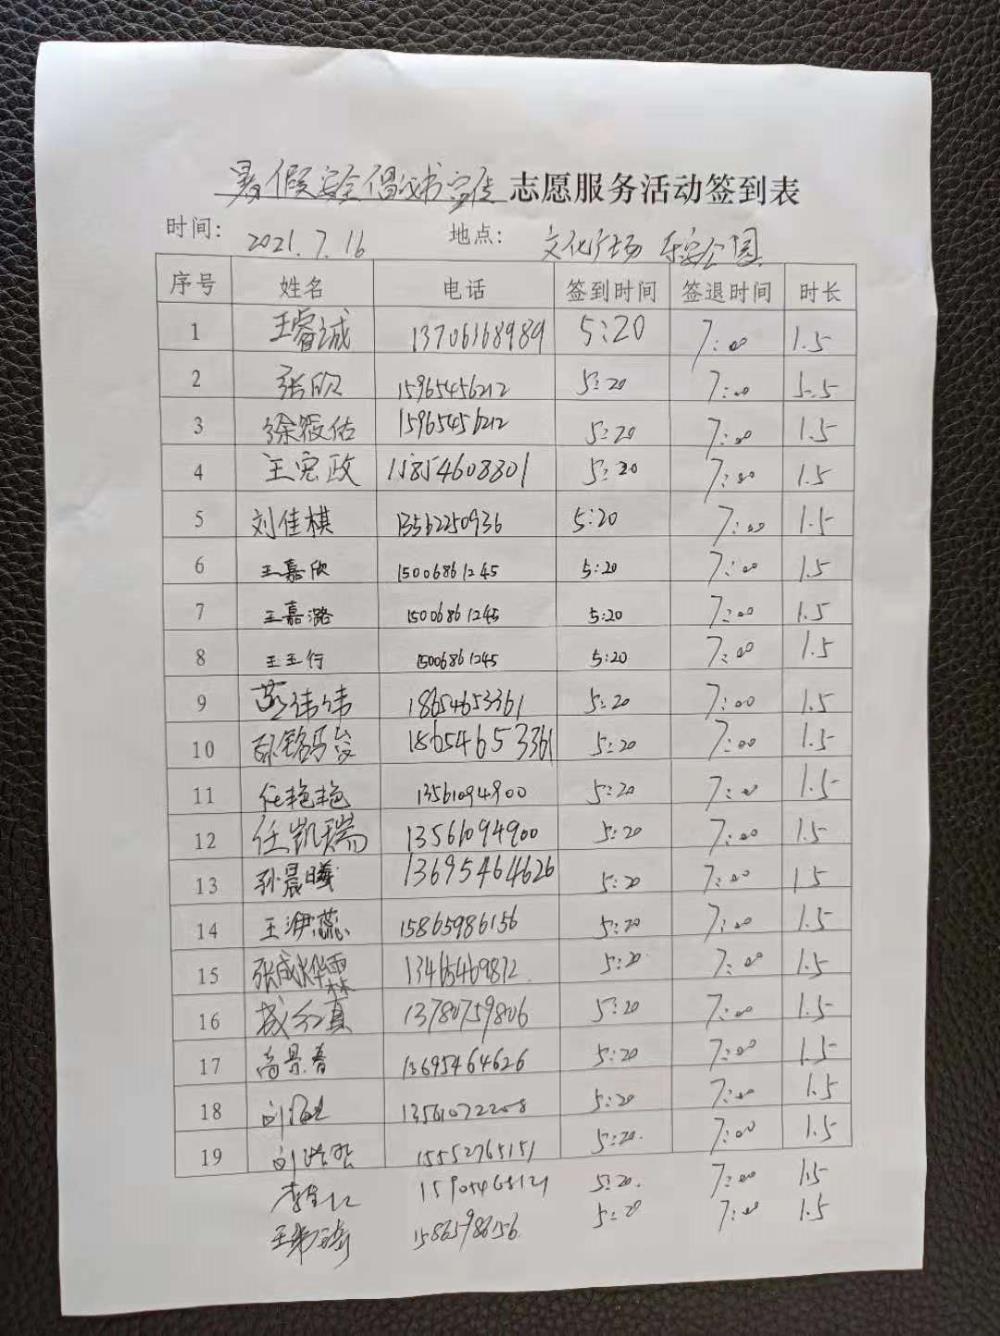 暑假安全倡议书宣传 志愿服务活动签到表
时间: 2021.7.16 地点: 文化广场 东安公园
序号 姓名 电话 签到时间 签退时间 时长
1 王睿诚 13706168989 5:20 7:00 1.5
2 张欣 15965456212 5:20 7:00 1.5
3 徐筱佑 15965456212 5:20 7:00 1.5
4 王宪政 15854608801 5:20 7:00 1.5
5 刘佳棋 13562250936 5:20 7:00 1.5
6 王嘉欣 15006861245 5:20 7:00 1.5
7 王嘉潞 15006861245 5:20 7:00 1.5
8 王玉行 15006861245 5:20 7:00 1.5
9 伟伟 18654653361 5:20 7:00 1.5
10 18654653361 5:20 7:00 1.5
11 任艳艳 13561094900 5:20 7:00 1.5
12 任凯瑞 13561094900 5:20 7:00 1.5
13 孙晨曦 13695464626 5:20 7:00 1.5
14 王洢蕊 15865986156 5:20 7:00 1.5
15 张成 13465469812 5:20 7:00 1.5
16 13780759806 5:20 7:00 1.5
17 高景春 13695464626 5:20 7:00 1.5
18 刘 13561072208 5:20 7:00 1.5
19 刘 15552765151 5:20. 7:00 1.5
李 15905468121 5:20. 7:00 1.5
王 1586598656. 5:20 7:00 1.5